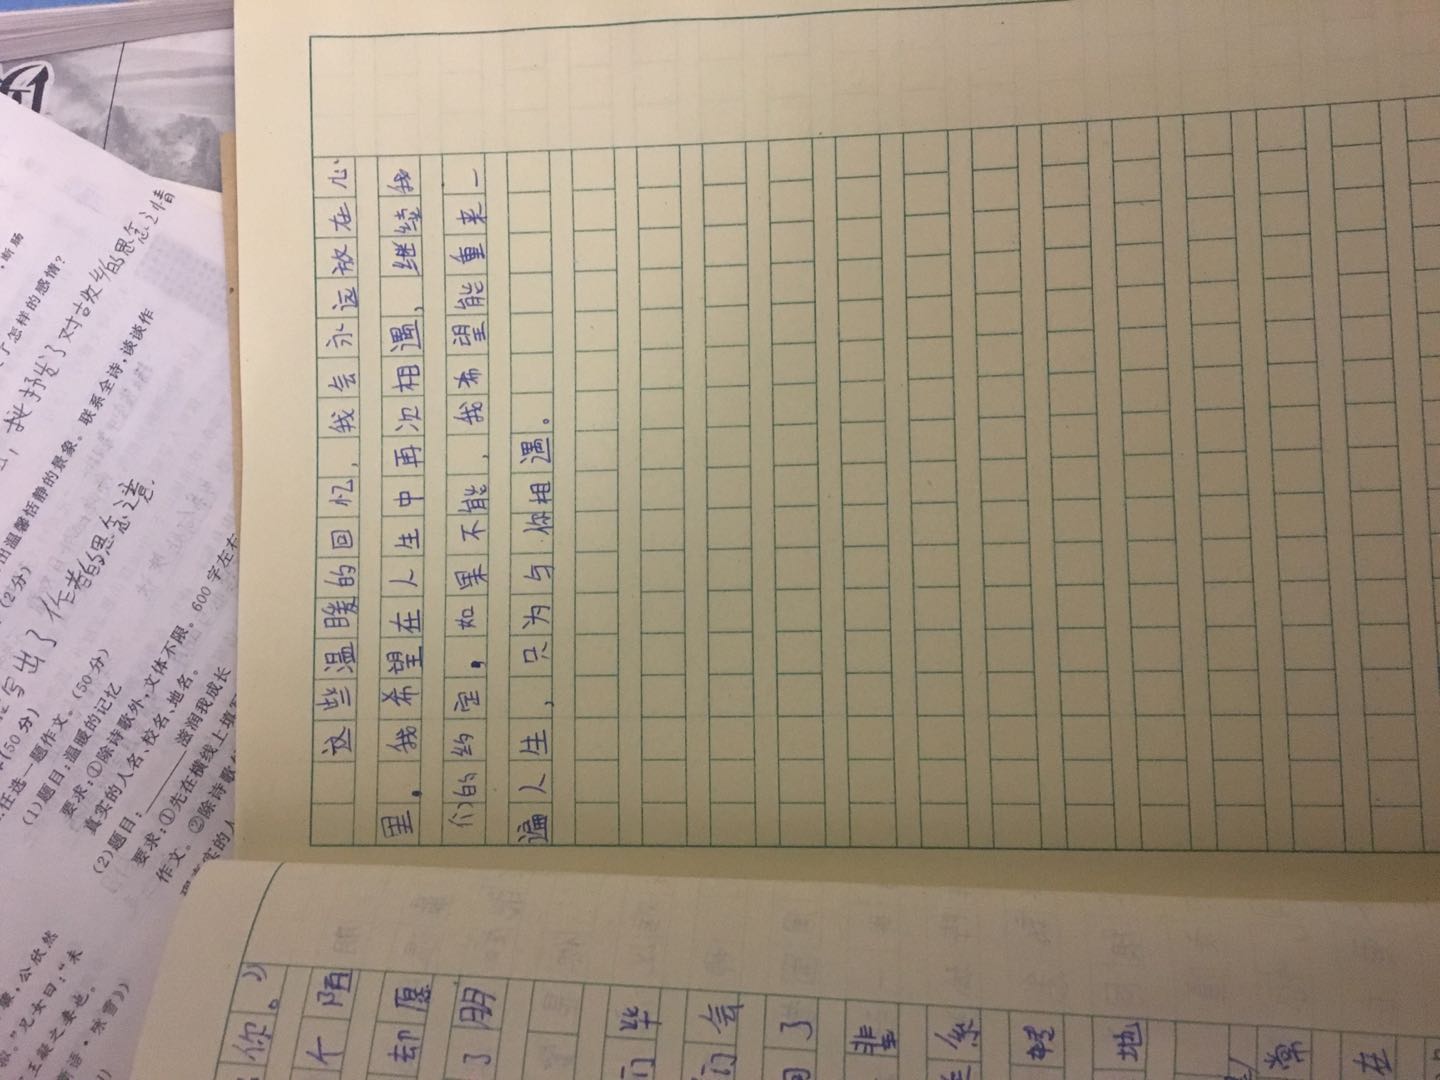 这些温暖的回忆，我会永远放在心
里。我希望在人生中再次相遇，继续我
们的约定，如果不能，我希望能重来一
遍人生，只为与你相遇。
你。》
个陌
却愿
了朋
们毕
们会
了
非
系
轻
地
常
在
，断肠
了怎样的感情？
抒发了对故乡的思念之情
出温馨恬静的景象。联系全诗，谈谈作
(2分)
写出了作者的思念之意.
(50分)
任选一题作文。(50分)
(1)题目：温暖的记忆
要求：①除诗歌外，文体不限。600字左右
真实的人名、校名、地名。
(2)题目：______滋润我成长
要求：①先在横线上填写
作文。②除诗歌
公欣然
”兄女曰：“未
王凝之妻也。
咏雪》)